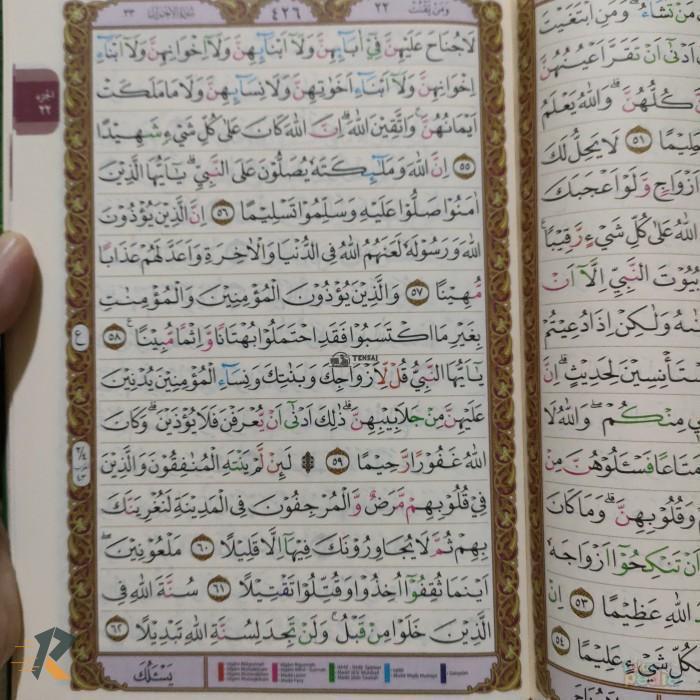 وَمَنْ يَّقْنُتْ ٢٢ ٤٢٦ ٣٣
الجزء
٢٢
لَاجُنَاحَ عَلَيْهِنَّ فِيْٓ اٰبَاۤىِٕهِنَّ وَلَآ اَبْنَاۤىِٕهِنَّ وَلَآ اِخْوَانِهِنَّ وَلَآ اَبْنَاۤءِ
اِخْوَانِهِنَّ وَلَآ اَبْنَاۤءِ اَخَوٰتِهِنَّ وَلَا نِسَاۤىِٕهِنَّ وَلَا مَا مَلَكَتْ
اَيْمَانُهُنَّۚ وَاتَّقِيْنَ اللّٰهَ ۗاِنَّ اللّٰهَ كَانَ عَلٰى كُلِّ شَيْءٍ شَهِيْدًا
٥٥ اِنَّ اللّٰهَ وَمَلٰۤىِٕكَتَهٗ يُصَلُّوْنَ عَلَى النَّبِيِّۗ يٰٓاَيُّهَا الَّذِيْنَ
اٰمَنُوْا صَلُّوْا عَلَيْهِ وَسَلِّمُوْا تَسْلِيْمًا ٥٦ اِنَّ الَّذِيْنَ يُؤْذُوْنَ
اللّٰهَ وَرَسُوْلَهٗ لَعَنَهُمُ اللّٰهُ فِى الدُّنْيَا وَالْاٰخِرَةِ وَاَعَدَّ لَهُمْ عَذَابًا
مُّهِيْنًا ٥٧ وَالَّذِيْنَ يُؤْذُوْنَ الْمُؤْمِنِيْنَ وَالْمُؤْمِنٰتِ
بِغَيْرِ مَا اكْتَسَبُوْا فَقَدِ احْتَمَلُوْا بُهْتَانًا وَّاِثْمًا مُّبِيْنًا ٥٨
ع
يٰٓاَيُّهَا النَّبِيُّ قُلْ لِّاَزْوَاجِكَ وَبَنٰتِكَ وَنِسَاۤءِ الْمُؤْمِنِيْنَ يُدْنِيْنَ
TENSAI
عَلَيْهِنَّ مِنْ جَلَابِيْبِهِنَّۗ ذٰلِكَ اَدْنٰىٓ اَنْ يُّعْرَفْنَ فَلَا يُؤْذَيْنَۗ وَكَانَ
اللّٰهُ غَفُوْرًا رَّحِيْمًا ٥٩ ۞ لَىِٕنْ لَّمْ يَنْتَهِ الْمُنٰفِقُوْنَ وَالَّذِيْنَ
فِيْ قُلُوْبِهِمْ مَّرَضٌ وَّالْمُرْجِفُوْنَ فِى الْمَدِيْنَةِ لَنُغْرِيَنَّكَ
بِهِمْ ثُمَّ لَا يُجَاوِرُوْنَكَ فِيْهَآ اِلَّا قَلِيْلًا ٦٠ مَلْعُوْنِيْنَۖ
اَيْنَمَا ثُقِفُوْٓا اُخِذُوْا وَقُتِّلُوْا تَقْتِيْلًا ٦١ سُنَّةَ اللّٰهِ فِى
الَّذِيْنَ خَلَوْا مِنْ قَبْلُۚ وَلَنْ تَجِدَ لِسُنَّةِ اللّٰهِ تَبْدِيْلًا ٦٢
يَسْـَٔلُكَ
R
مَنْ تَشَاۤءُۗ وَمَنِ ابْتَغَيْتَ
اَدْنٰىٓ اَنْ تَقَرَّ اَعْيُنُهُنَّ
كُلُّهُنَّۗ وَاللّٰهُ يَعْلَمُ
حَلِيْمًا ٥١ لَا يَحِلُّ لَكَ
اَزْوَاجٍ وَّلَوْ اَعْجَبَكَ
اللّٰهُ عَلٰى كُلِّ شَيْءٍ رَّقِيْبًا
بُيُوْتَ النَّبِيِّ اِلَّآ اَنْ
وَلٰكِنْ اِذَا دُعِيْتُمْ
مُسْتَأْنِسِيْنَ لِحَدِيْثٍۗ اِنَّ
مِنْكُمْ ۖوَاللّٰهُ لَا
مَتَاعًا فَسْـَٔلُوْهُنَّ مِنْ
وَقُلُوْبِهِنَّۗ وَمَا كَانَ
اَنْ تَنْكِحُوْٓا اَزْوَاجَهٗ
اللّٰهِ عَظِيْمًا ٥٣ اِنْ
بِكُلِّ شَيْءٍ عَلِيْمًا ٥٤